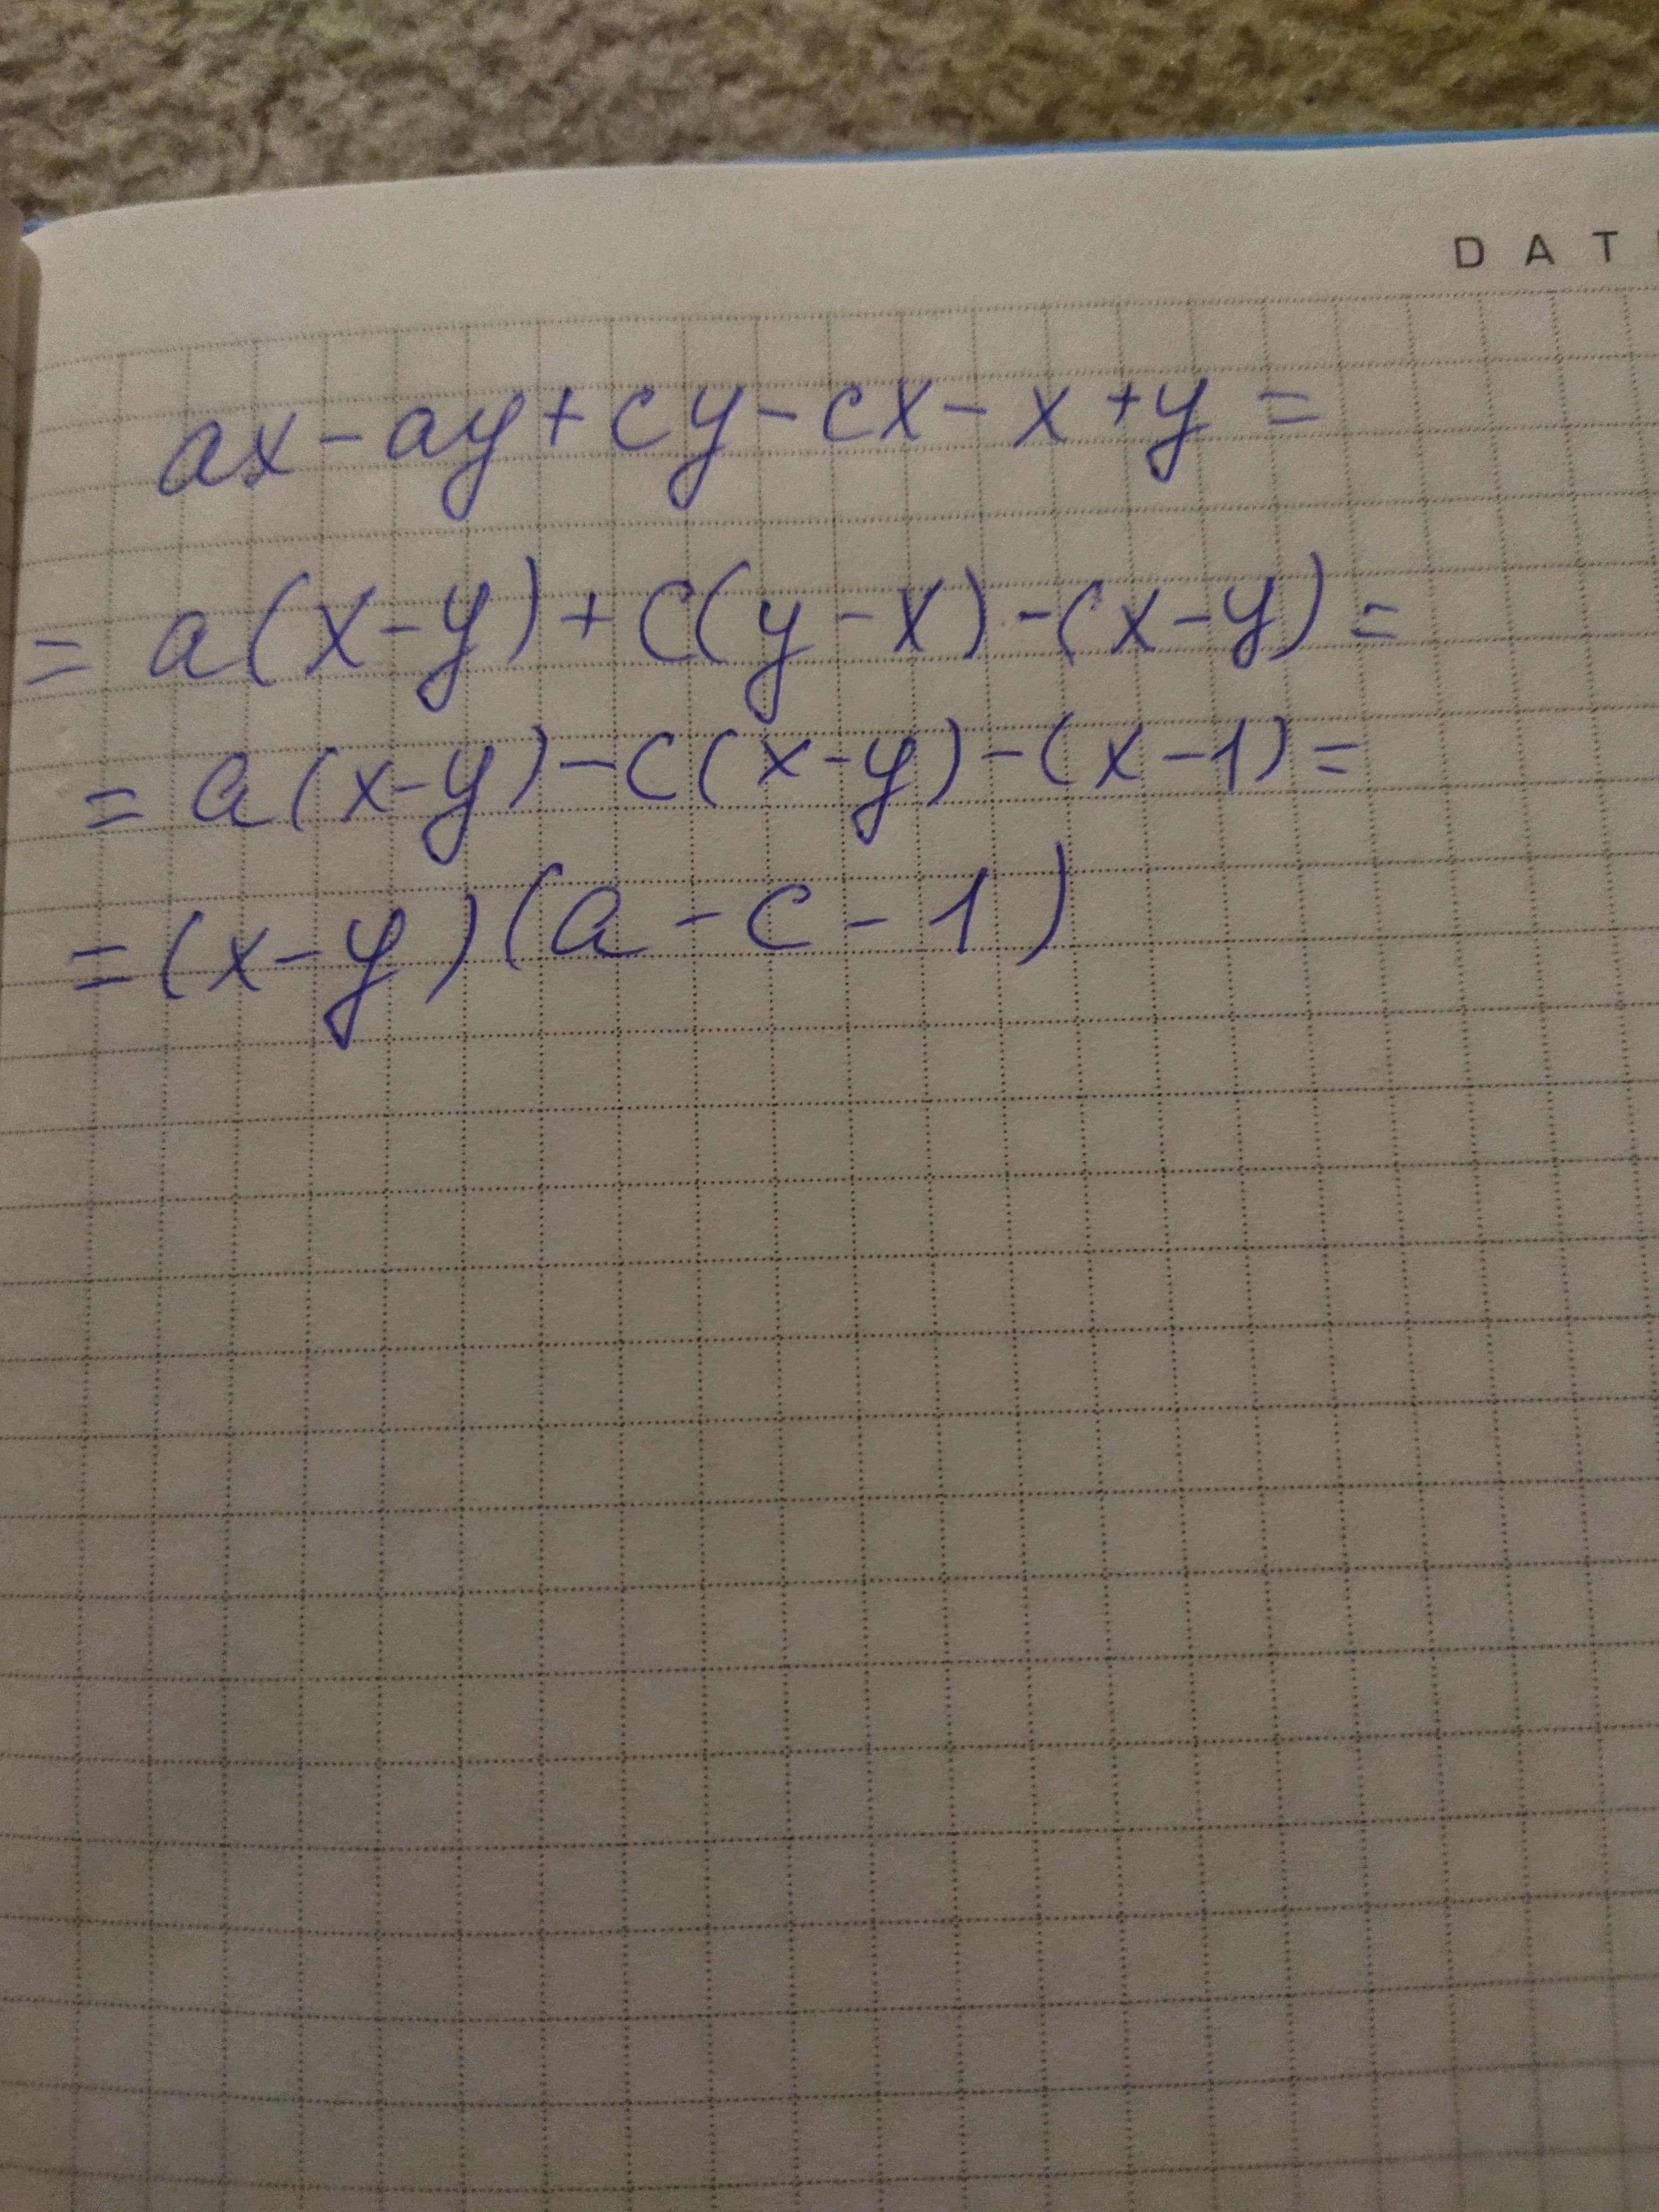 DAT
ax-ay+cy-cx-x+y=
=a(x-y)+c(y-x)-(x-y)=
=a(x-y)-c(x-y)-(x-1)=
=(x-y)(a-c-1)